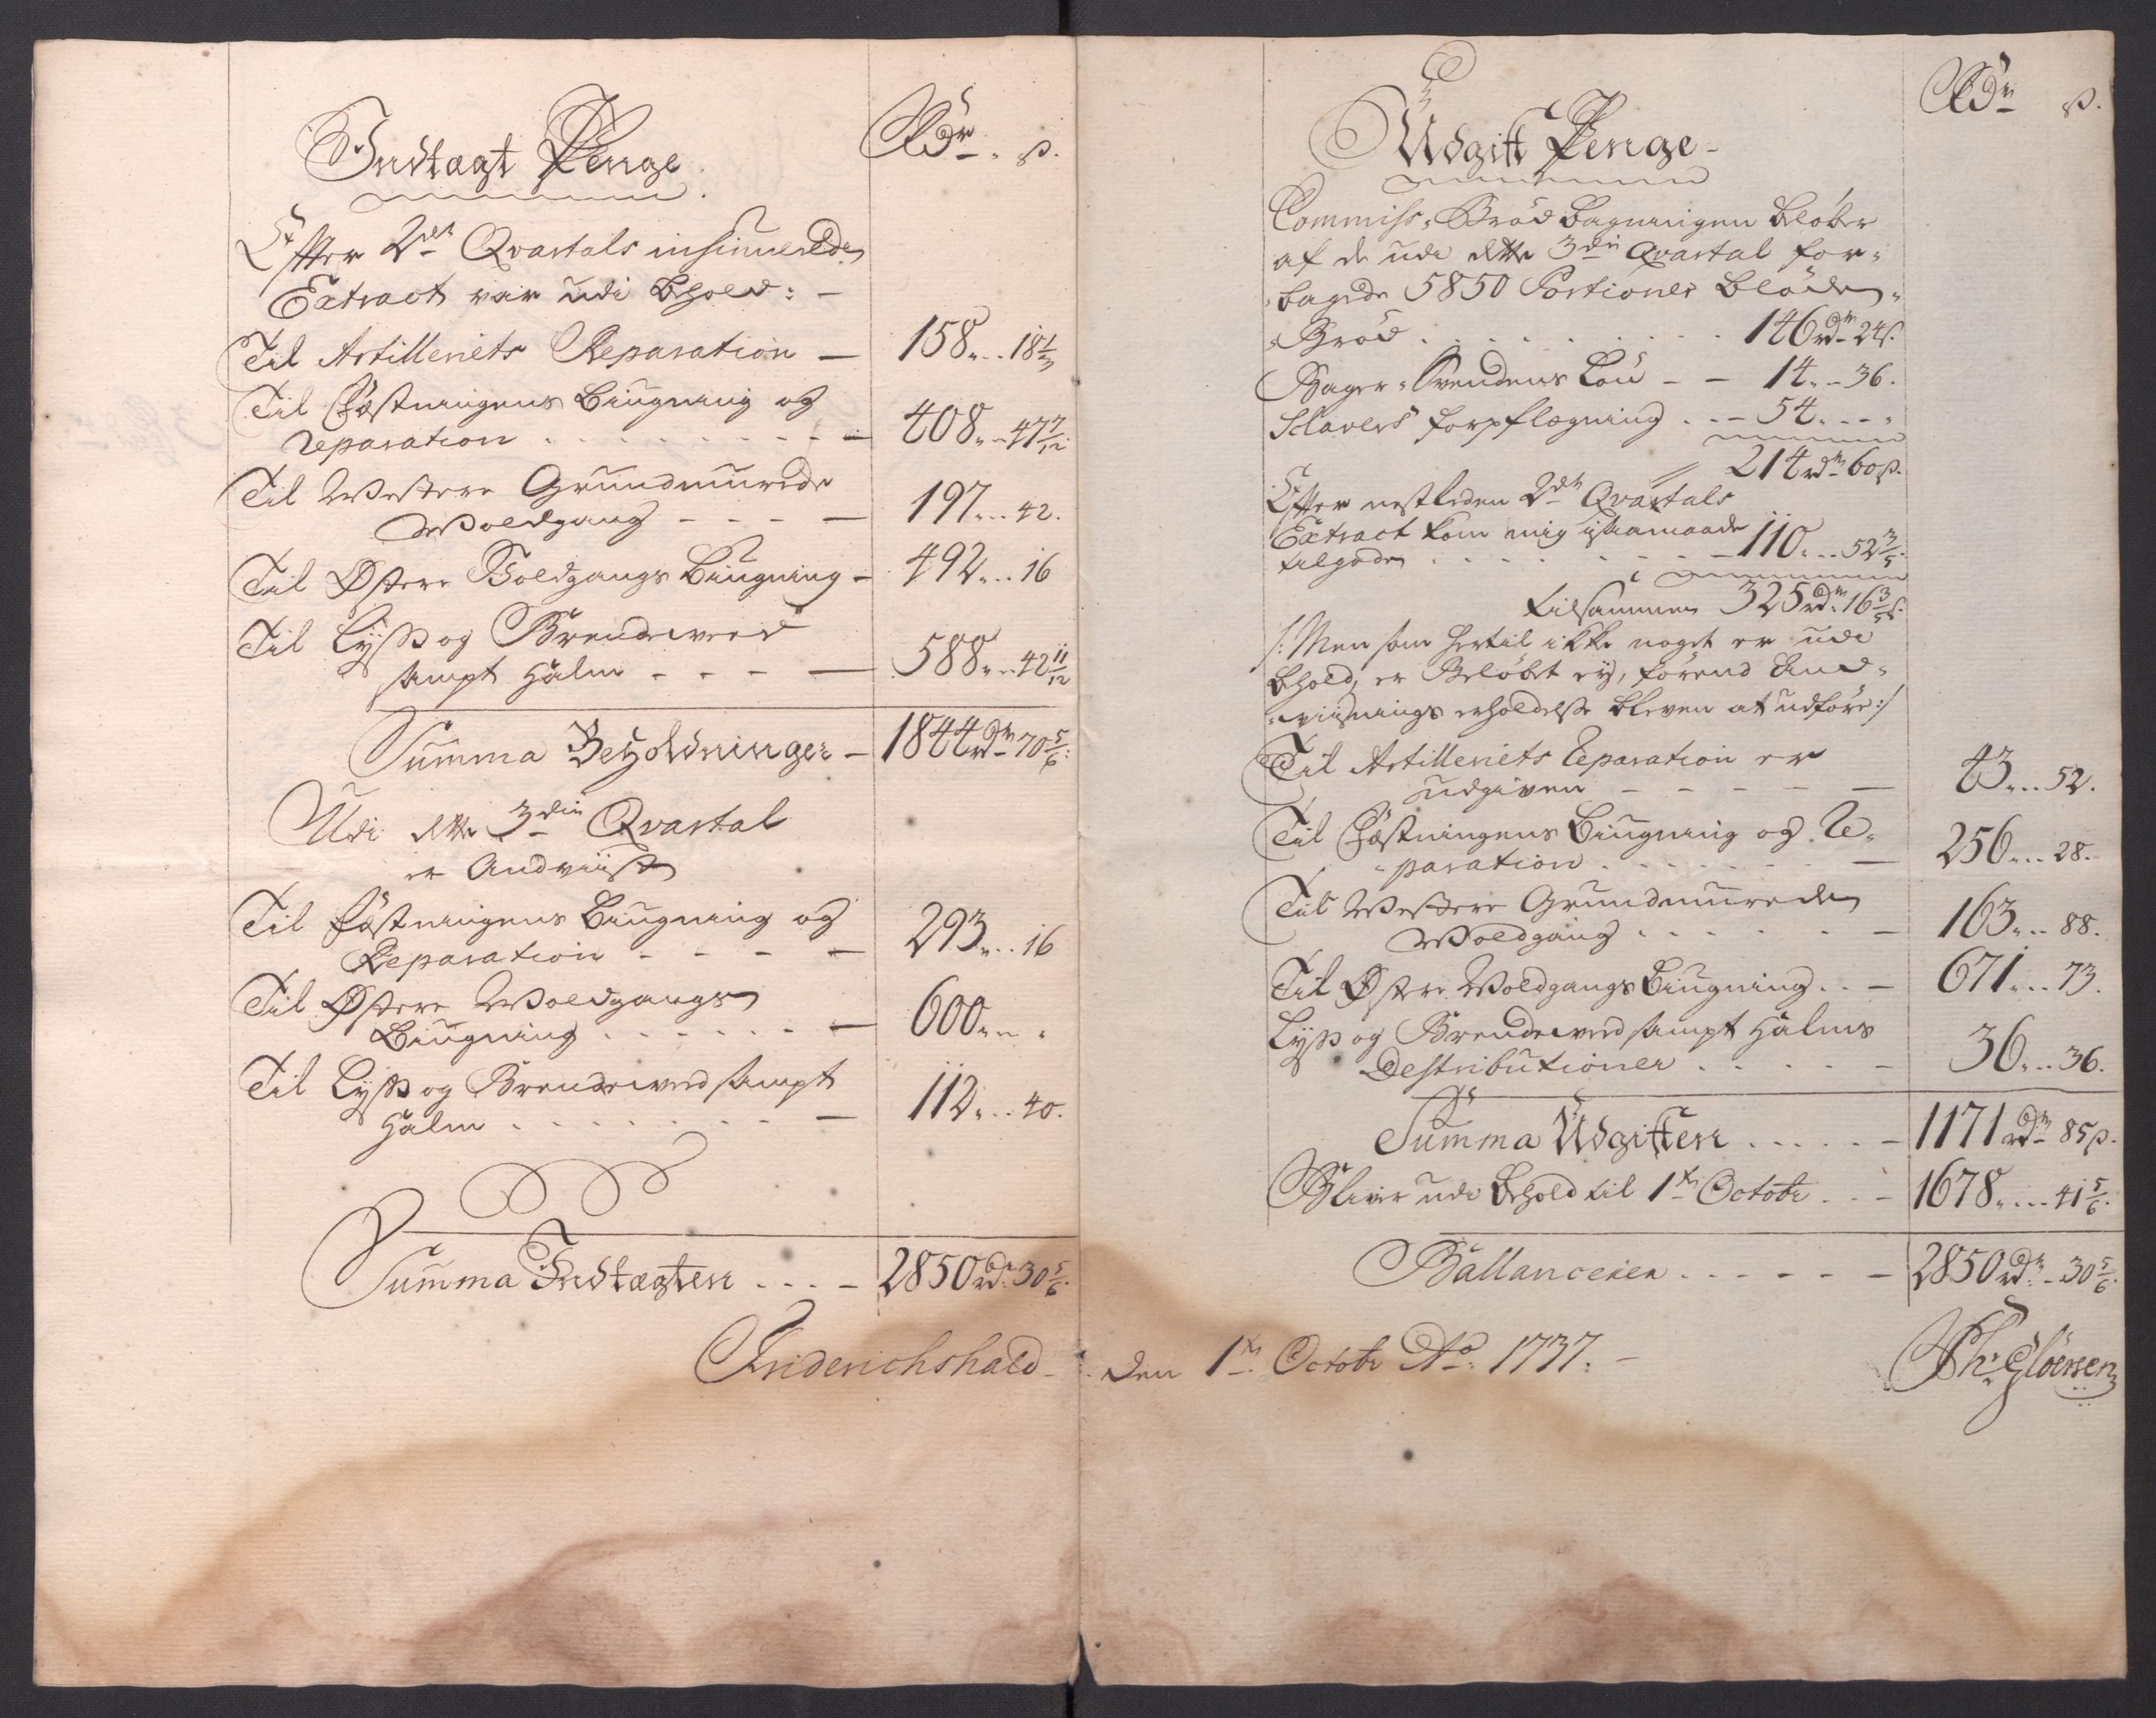 Indtægt Penge Rdr. ß.
Efter 2den Qvartals insinuerede
Extract var udi behold: -
Til Artilleriets Reparation - 158 .. 18 1/3
Til Fæstningens Biugning og
reparation . . . . . 408 .. 47 7/12
Til Westere Grundmurede
Woldgang - - - 197 .. 42.
Til Østere Voldgangs Biugning - 492 .. 16
Til Lyß og Brendeveed
sampt Halm - - - 588 .. 42 11/12
Summa Beholdninger - 1844 rdr 70 5/6
Udi dette 3die Qvartal
er Andviist
Til Fæstningens Biugning og
Reparation - - - 293 .. 16
Til Østere Woldgangs
Biugning . . . . . 600 .. "
Til Lyß og Brendeveed sampt
Halm . . . . . . 112 .. 40.
Summa Indtægten . . . - 2850 rdr 30 5/6
Udgift Penge - Rdr ß.
Commiss: Brød bagningen beløber
af de udi dette 3die Qvartal for-
bagede 5850 Portioner bløde-
Brød . . . . . 146 rdr 24 ß.
Bager-Svendens Løn - - 14 .. 36.
Slavers forpflegning . . - 54 . . .
214 rdr 60 ß.
Efter nestleden 2den Qvartals
Extract kom mig isaamaade
tilgode . . . . . 110 .. 52 3/5
tilsammen 325 rdr 16 3/5 ß.
/: Men som hertil ikke noget er udi
behold, er Beløbet ey, førend And-
viisnings erholdelse bleven at udføre :/
Til Artilleriets Reparation er
udgiven - - - - - 43 .. 52.
Til Fæstningens Biugning og Re-
paration . . . . . - 256 .. 28.
Til Westere Grundmurede
Woldgang . . . . . - 163 .. 88.
Til Østre Woldgangs Biugning . . - 671 .. 73.
Lyß og Brendeveed sampt Halms
Destributioner . . . . - 36 .. 36.
Summa Udgiften . . . . - 1171 rdr 85 ß.
Bliver udi behold til 1te Octobr . . - 1678 .. 41 5/6.
Ballancerer . . - - - - 2850 rdr - 30 5/6.
Friderichshald - den 1te Octobr Ao: 1737. -